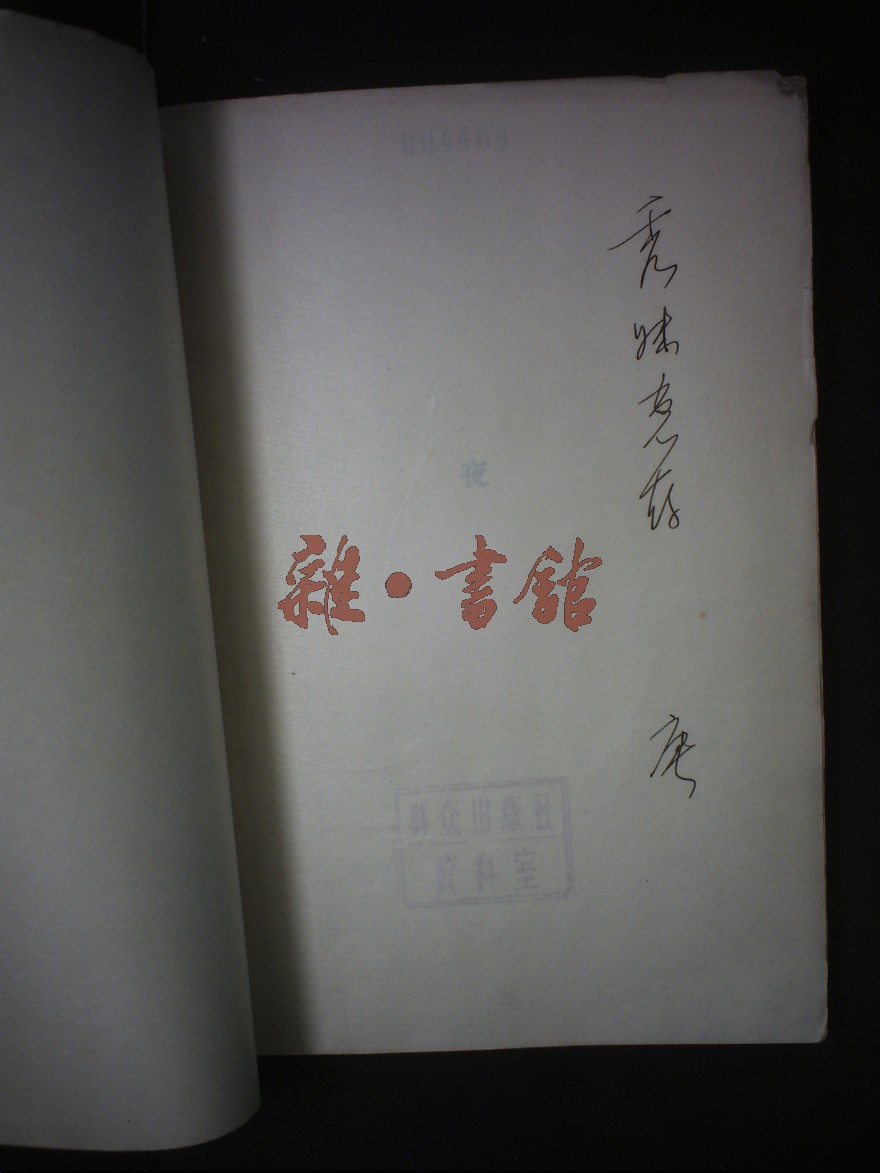 004468
秀妹惠存
夜
雜·書館
唐
群众出版社
资料室